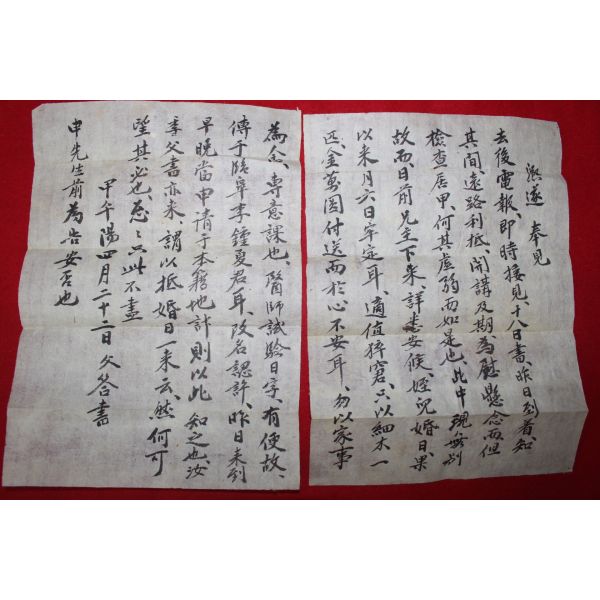 漵遂 奉見
去後電報、即時接見、十八日書、昨日到着、知
其間、遠路利抵、開講及期、為慰懸念、而但
檢查居甲、何其虛弱而如是也、此中現無別
故、而日前兄主下來、詳悉安候、姪兒婚日、果
以來月六日牢定耳、適值猝窘、只以細木一
匹、金萬圜付送、而於心不安耳、勿以家事
為念、專意課也、醫師試驗日字、有便故、
傳于陰單李鍾夏君耳、改名認許、昨日未到
早晚當申請于本籍地計、則以此知之也、汝
季父書亦來、謂以抵婚日一來云、然何可
望其必也、忽忽只此不盡
甲午陽四月二十二日 父答書
申先生前為告安否也